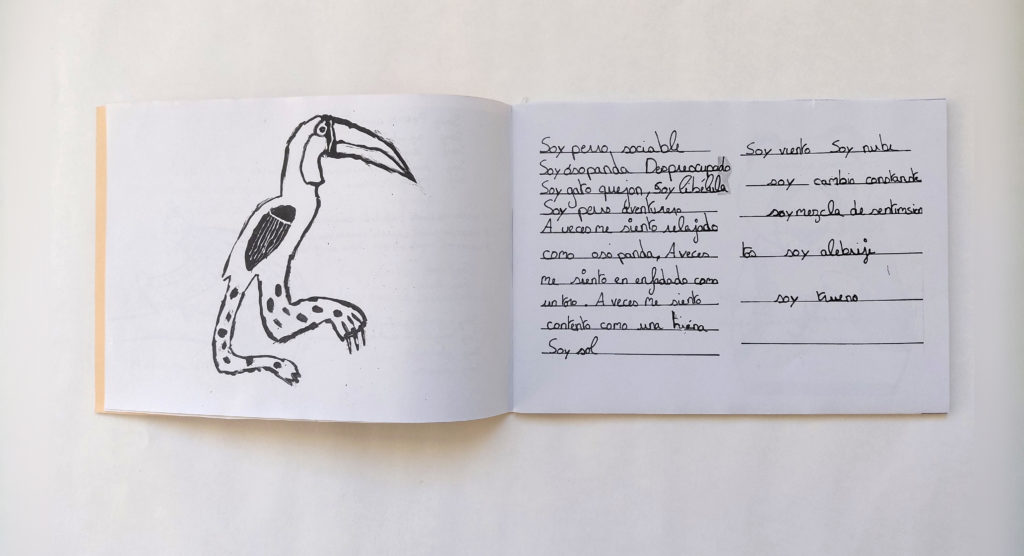 Soy perro sociable
Soy osopanda Despreocupado
Soy gato quejon, soy libélula
Soy perro aventurero
A veces me siento relajado
como oso panda, A veces
me siento en enfadado como
un toro. A veces me siento
contento como una hiena
Soy sol
Soy viento Soy nube
soy cambio constante
soy mezcla de sentimsien
tos soy alebrije
soy trueno